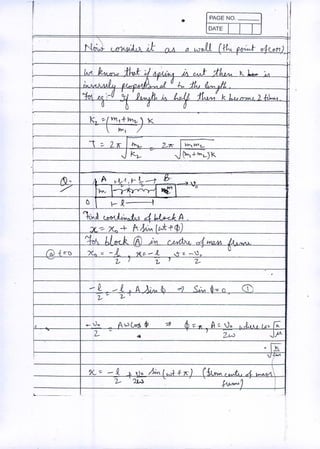 PAGE NO.
DATE
Now consider it as a wall (the point of com)
We know that if spring is cut then k is
inversely proportional to the length.
For eg:- If length is half then k become 2 times.
K₂ = (m₁+m₂) k
m₁
T = 2π √m₂/K₂ = 2π √m₁m₂/(m₁+m₂)k
Q:- A B
m m → v₀
0 l
Find coordinates of block A.
x = x₀ + A sin (ωt + ϕ)
For block Ⓐ in centre of mass frame
@ t=0 x₀ = -l/2, x = -l/2, v = -v₀/2
-l/2 = -l/2 + A sin ϕ ⇒ sin ϕ = 0. ①
-v₀/2 = Aω cos ϕ ⇒ ϕ = π, A = v₀/2ω where ω =
x = -l/2 + v₀/2ω sin (ωt + π) (from centre of mass
frame)